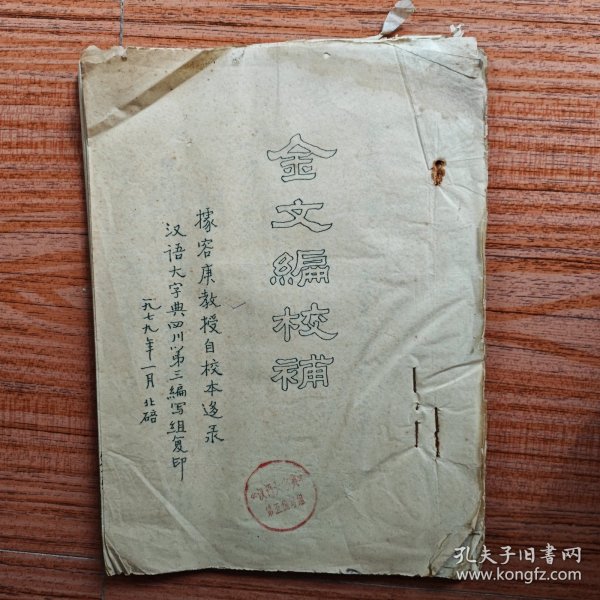 金文編校補
據容庚教授自校本迻录
汉语大字典四川第三編写组复印
一九七九年一月北碚
孔夫子旧書网
www.kongfz.com